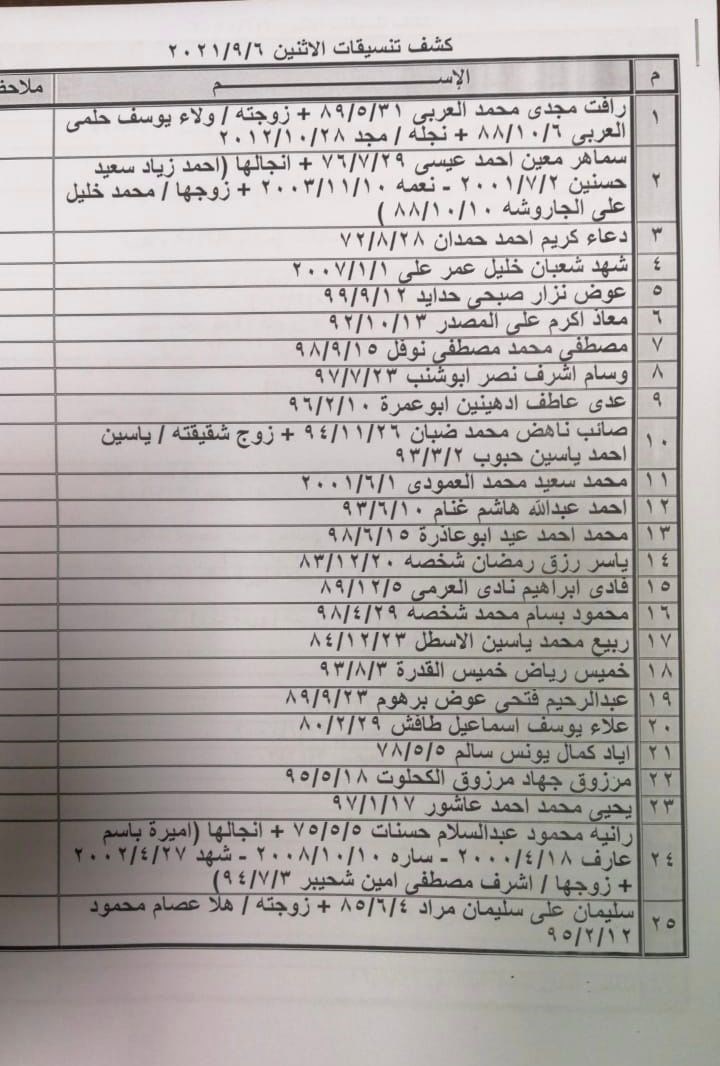 كشف تنسيقات الاثنين ٢٠٢١/٩/٦
م الإســـــــــم ملاحظ
١ رافت مجدى محمد العربى ٨٩/٥/٣١ + زوجته / ولاء يوسف حلمى
العربى ٨٨/١٠/٦ + نجله / مجد ٢٠١٢/١٠/٢٨
٢ سماهر معين احمد عيسى ٧٦/٧/٢٩ + انجالها (احمد زياد سعيد
حسنين ٢٠٠١/٧/٢ - نعمه ٢٠٠٣/١١/١٠ + زوجها / محمد خليل
على الجاروشه ٨٨/١٠/١٠ )
٣ دعاء كريم احمد حمدان ٧٢/٨/٢٨
٤ شهد شعبان خليل عمر على ٢٠٠٧/١/١
٥ عوض نزار صبحى حدايد ٩٩/٩/١٢
٦ معاذ اكرم على المصدر ٩٢/١٠/١٣
٧ مصطفى محمد مصطفى نوفل ٩٨/٩/١٥
٨ وسام اشرف نصر ابوشنب ٩٧/٧/٢٣
٩ عدى عاطف ادهينين ابوعمرة ٩٦/٢/١٠
١٠ صائب ناهض محمد ضبان ٩٤/١١/٢٦ + زوج شقيقته / ياسين
احمد ياسين حبوب ٩٣/٣/٢
١١ محمد سعيد محمد العمودى ٢٠٠١/٦/١
١٢ احمد عبدالله هاشم غنام ٩٣/٦/١٠
١٣ محمد احمد عيد ابوعاذرة ٩٨/٦/١٥
١٤ ياسر رزق رمضان شخصه ٨٣/١٢/٢٠
١٥ فادى ابراهيم نادى العرمى ٨٩/١٢/٥
١٦ محمود بسام محمد شخصه ٩٨/٤/٢٩
١٧ ربيع محمد ياسين الاسطل ٨٤/١٢/٢٣
١٨ خميس رياض خميس القدرة ٩٣/٨/٣
١٩ عبدالرحيم فتحى عوض برهوم ٨٩/٩/٢٣
٢٠ علاء يوسف اسماعيل طافش ٨٠/٢/٢٩
٢١ اياد كمال يونس سالم ٧٨/٥/٥
٢٢ مرزوق جهاد مرزوق الكحلوت ٩٥/٥/١٨
٢٣ يحيى محمد احمد عاشور ٩٧/١/١٧
٢٤ رانيه محمود عبدالسلام حسنات ٧٥/٥/٥ + انجالها (اميرة باسم
عارف ٢٠٠٠/٤/١٨ - ساره ٢٠٠٨/١٠/١٠ - شهد ٢٠٠٢/٤/٢٧
+ زوجها / اشرف مصطفى امين شحيبر ٩٤/٧/٣)
٢٥ سليمان على سليمان مراد ٨٥/٦/٤ + زوجته / هلا عصام محمود
٩٥/٢/١٢